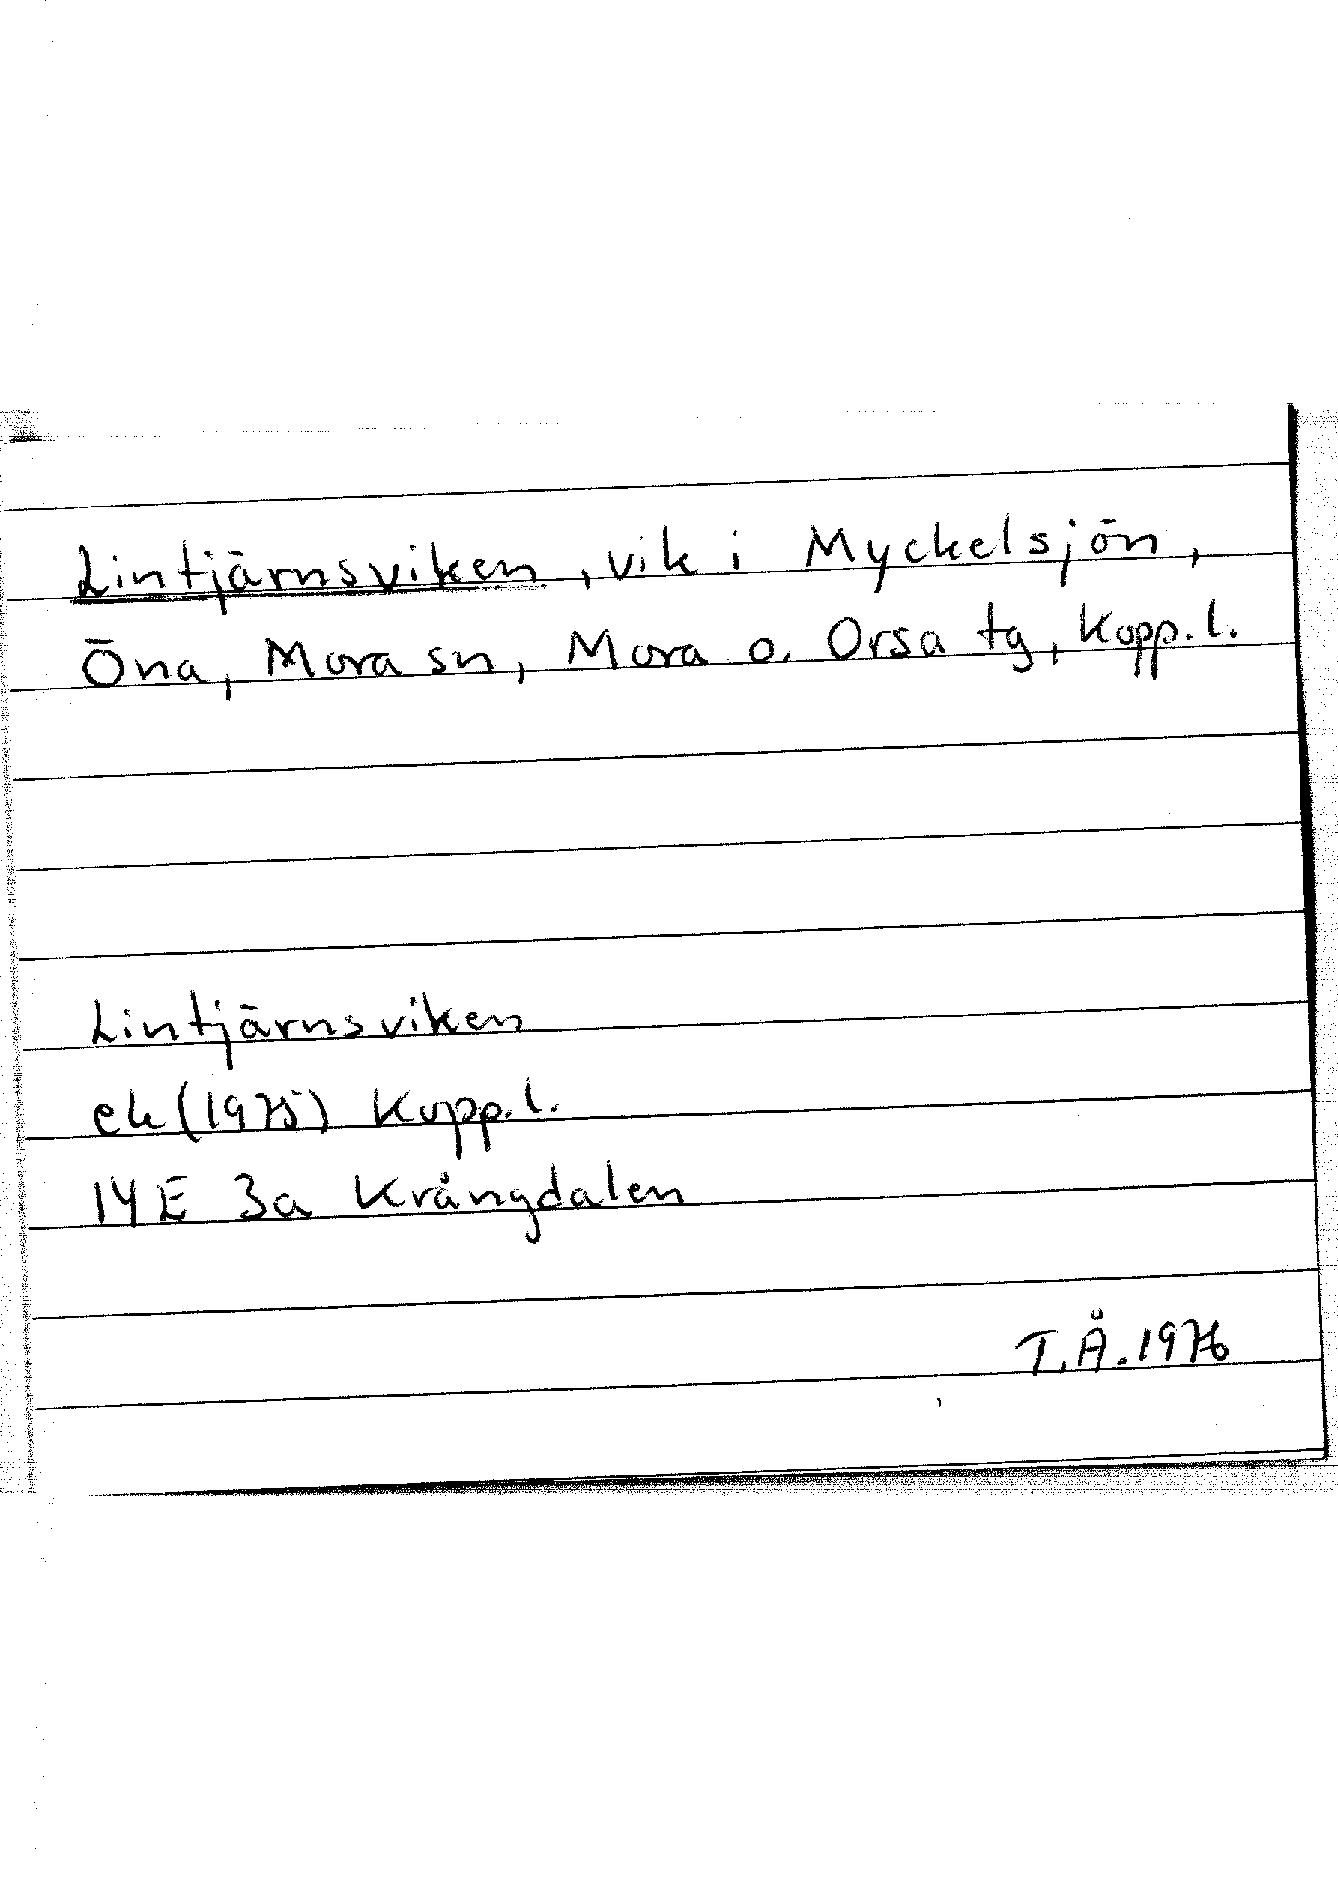 Lintjärnsviken, vik i Myckelsjön,
Öna, Mora sn, Mora o. Orsa tg, Kopp. l.
Lintjärnsviken
ek (1975) Kopp. l.
14 E 3a Krångdalen
T.Å. 1976